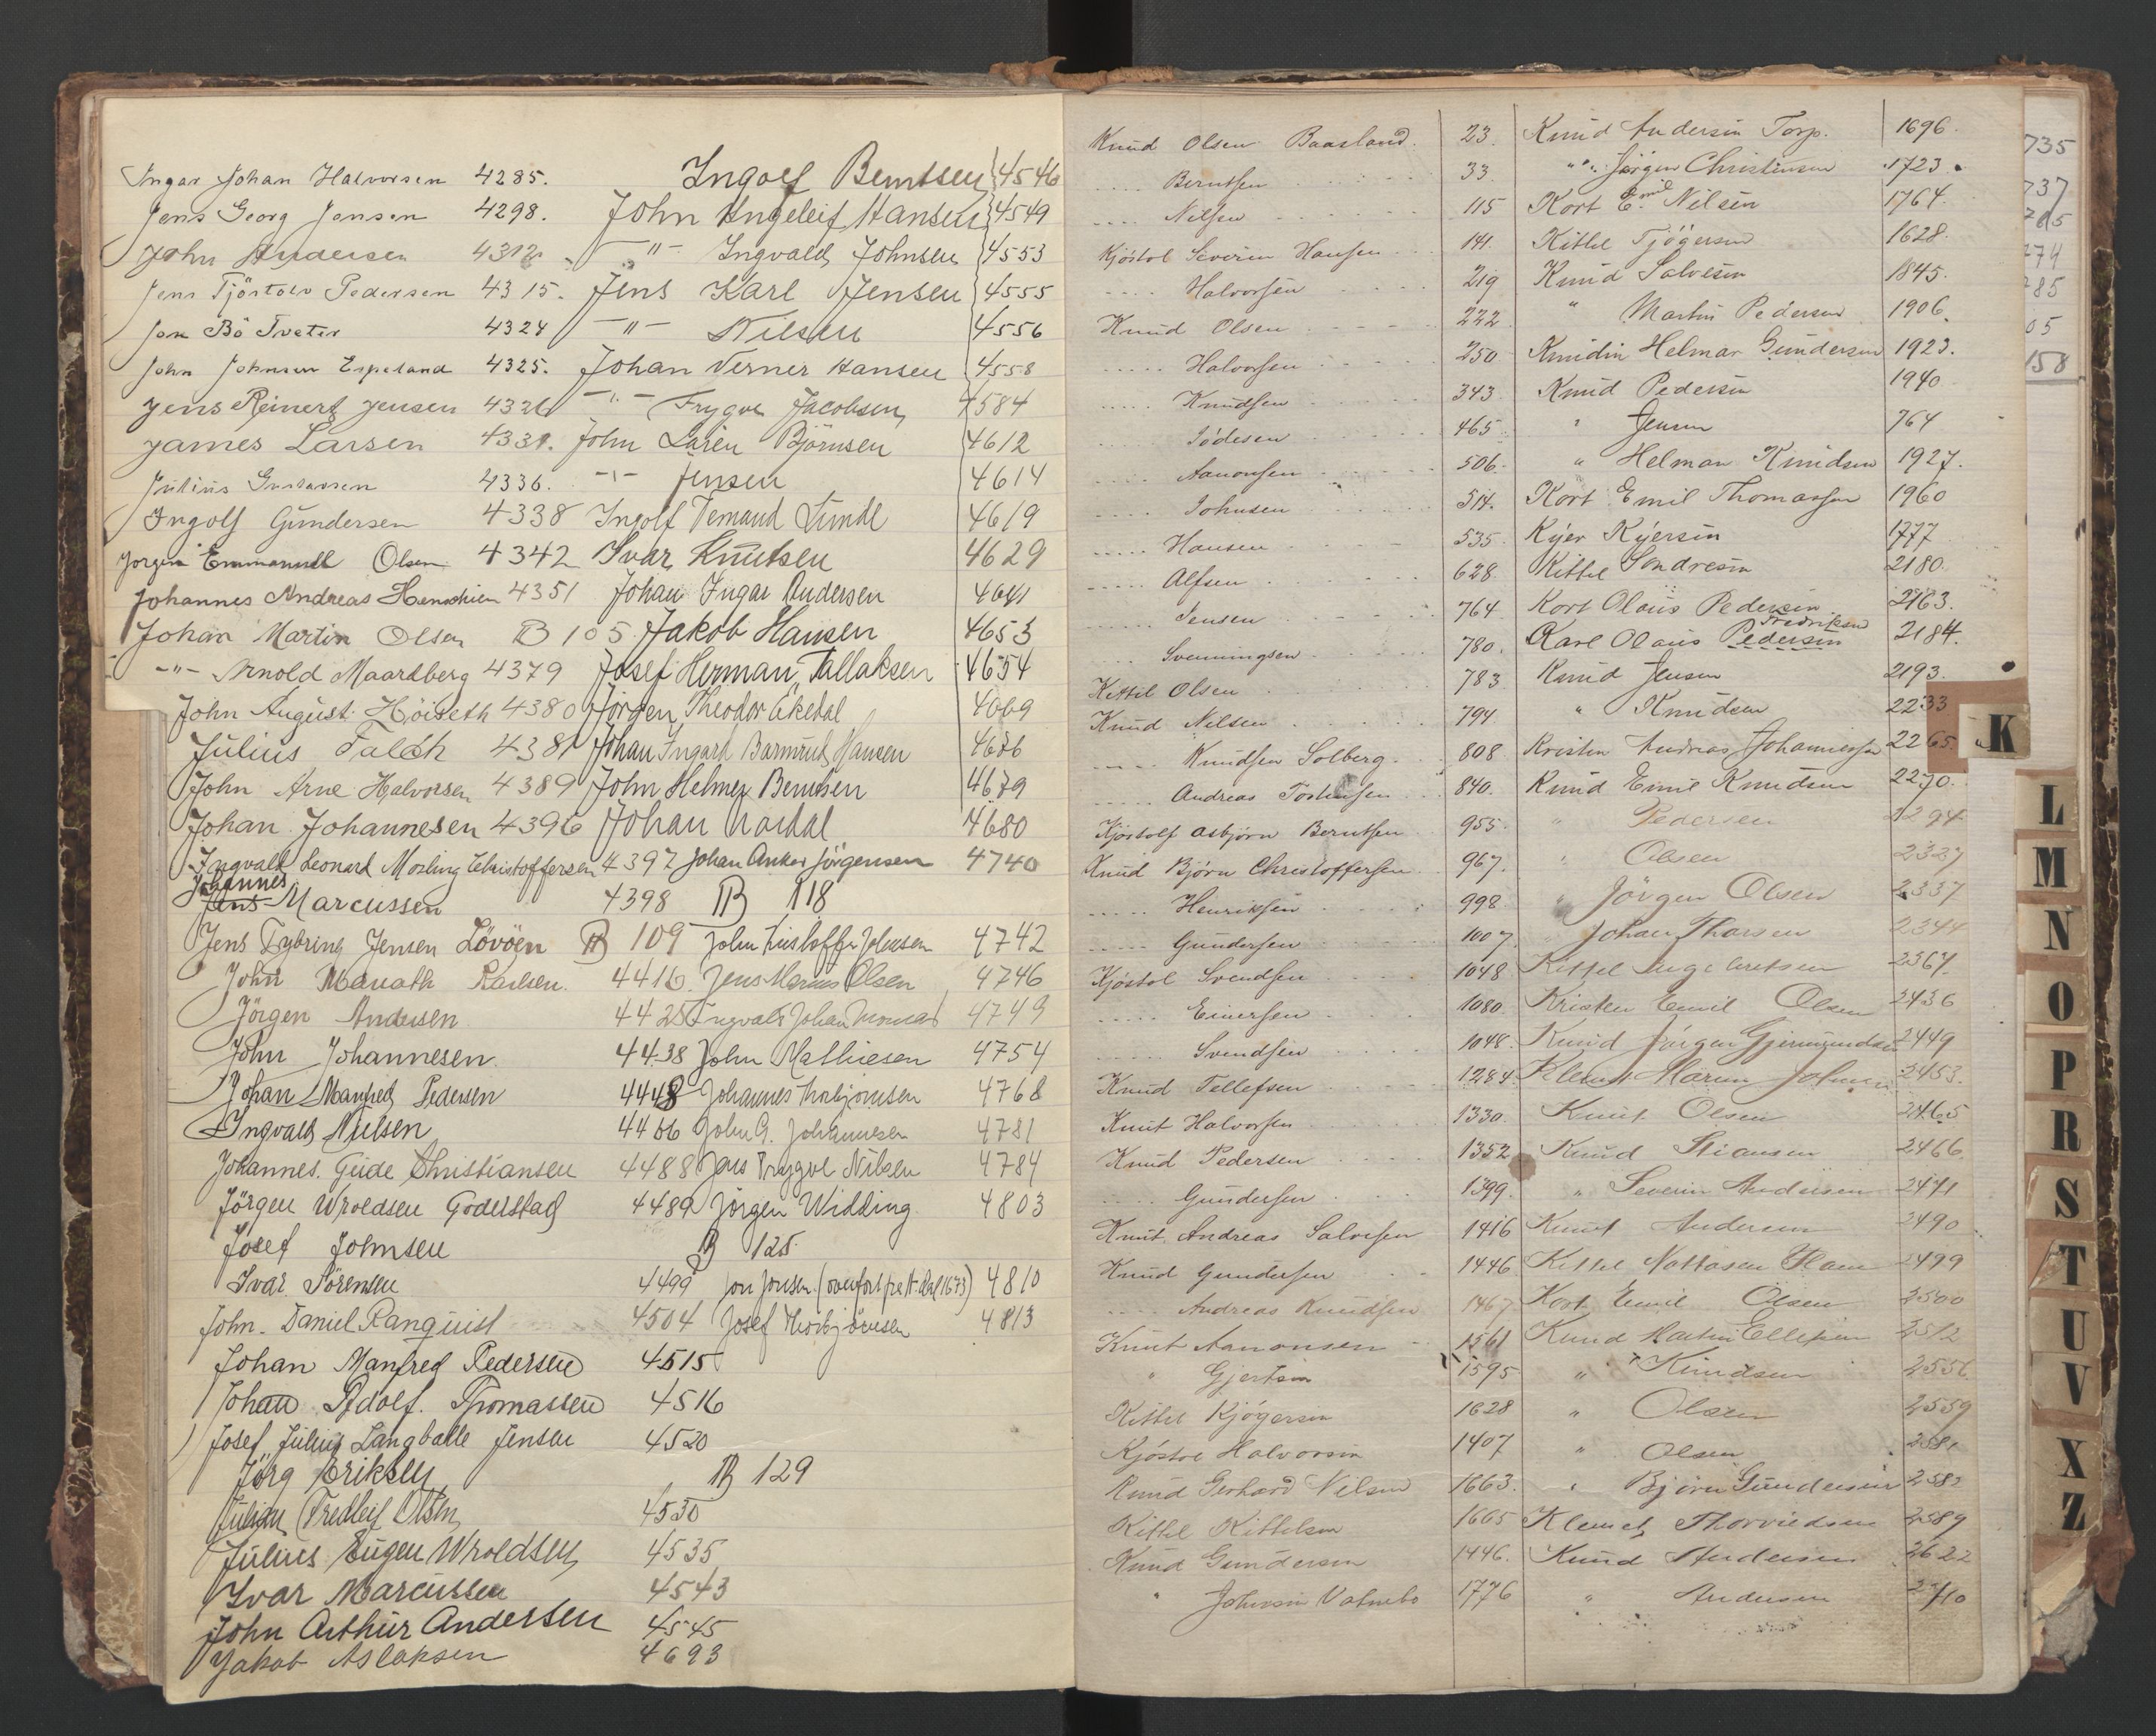 Ingar Johan Halvorsen 4285.
Jens Georg Jensen 4298.
John Andersen 4312
Jens Tjöstolv Pedersen 4315.
Jon Bö Tveter 4324
John Johnsen Espeland 4325.
Jens Reinert Jensen 4326
James Larsen 4331.
Julius Gustavsen 4336.
Ingolf Gundersen 4338
Jorgen Emmanuell Olsen 4342
Johannes Andreas Henschien 4351
Johan Martin Olsen B 105
-"- Arnold Maardberg 4379
John August Höiseth 4380
Julius Falch 4381
John Arne Halvorsen 4389
Johan Johannesen 4396
Ingvald Leonard Mosling Christoffersen 4397
Johannes
Jens Marcussen 4398
Jens Dybring Jensen Lövöen B 109
John Karlsen. 4416.
Jörgen Andersen 4425
John Johannesen. 4438
Johan Manfred Pedersen 4448
Ingvald Nielsen 4456
Johannes. Gude Christiansen 4488
Jörgen Wroldsen Goderstad 4489
Josef Johnsen B 125
Ivar Sörensen 4499
John. Daniel Ranquist 4504
Johan Manfred Pedersen 4515
Johan Adolf. Thomassen 4516
Josef Julius Langballe Jensen 4520
Jörg Eriksen B 129
Julian Fredleif Olsen 4530
Julius Eugen Wroldsen 4535
Ivar Marcussen 4543
John Arthur Andersen 4545
Jakob Aslaksen 4693
Ingolf Berntsen 4546
John Ingeleif Hansen 4549
-"- Ingvald Johnsen 4553
Jens Karl Jensen 4555
-"- Nilsen 4556
Johan Verner Hansen 4558
-"- Trygve Jacobsen 4584
John Björnsen 4612
-"- Jensen 4614
Ingolf Lunde 4619
Ivar Knutsen 4629
Johan Ingar Andersen 4641
Jakob Hansen 4653
Josef Herman Tallaksen 4654
Jörgen Theodor Økedal 4669
Johan Ingard Hansen
John Helmer Berntsen 4679
Johan Nordal 4680
Johan Anker Jörgensen 4740
B 118
John Kristoffer Johnsen 4742
Jens Marius Olsen 4746
Ingvald Johan 4749
John Mathiesen 4754
Johannes Thorbjörnsen 4768
John G. Johannesen 4781
Jens Trygve Nilsen 4784
Jörgen Widding 4803
Jon Jonsen 4810
Josef Thorbjörnsen 4813
Knud Olsen Baasland. 23.
.... Berntsen 33
.... Nilsen 115
Kjöstol Severin Hansen 141.
.... Halvorsen 219
Knud Olsen 222
.... Halvorsen 250
.... Knudsen 343.
.... 465
.... Aanonsen 506.
.... Johnsen 514.
.... Hansen 535
.... Alfsen 628
.... Jensen 764
.... Svenningsen 780.
Kittil Olsen 783
Knud Nilsen 794
.... Knudsen Solberg. 808
.... Andreas Torstensen 840.
Kjöstolf Asbjörn Berntsen 955
Knud Björn Christoffersen 967.
.... Henriksen 998
.... Gundersen 1007
Kjöstol Svendsen 1048
.... Einersen 1080
.... Svendsen 1048.
Knud Tellefsen 1284
Knut Halvorsen 1330.
Knud Pedersen 1352
.... Gundersen 1399.
Knut Andreas Salvesen 1416
Knud Gundersen 1446
.... Andreas Knudsen 1467
Knut Aanonsen 1561
" Gjertsen 1595
Kittel Kjögersen 1628
Kjöstol Halvorsen 1407
Knud Gerhard Nilsen 1663.
Kittel Kittelsen 1665
Knud Gundersen 1446.
" Johnsen Vatnebo 1776
Knud Andersen Torp. 1696.
" Jörgen Christensen 1723.
Kort Emil Nilsen 1764.
Kittel Tjögersen 1628.
Knud Salvesen 1845.
" Martin Pedersen 1906.
Knudin Helmar Gundersen 1923.
Knud Pedersen 1940
" Jensen 764
" Helman Knudsen 1927.
Kort Emil Thomassen 1960
Kyer Kyersen 1777
Kittel Sondresen 2180.
Kort Olaus Pedersen 2183.
Fredriksen
Karl Olaus Pedersen 2184.
Knud Jensen 2193.
" Knudsen 2233
Kristen Andreas Johannessen 2265.
Knud Emil Knudsen 2270.
" Pedersen 2294
" Olsen 2327
" Jörgen Olsen 2337
" Johan Tharsen 2344
Kittel Ingebretsen 2367.
Kristen Emil Olsen 2436
Knud Jörgen Gjermundsen 2449
Klemet Maren Johnsen 2453.
Knut Olsen 2465
Knud Stiansen 2466
" Severin Andersen 2471
Knut Andersen 2490
Kittel 2499
Kort Emil Olsen 2500
Knud Martin Ellefsen 2512
" Knudsen 2556
" Olsen 2559
" Olsen 2581
" Björn Gundersen 2582
Klemet Thorvildsen 2589
Knud Andersen 2622
" Andersen 2710
735
737
158
K
L
M
N
O
P
R
S
T
U
V
X
Z